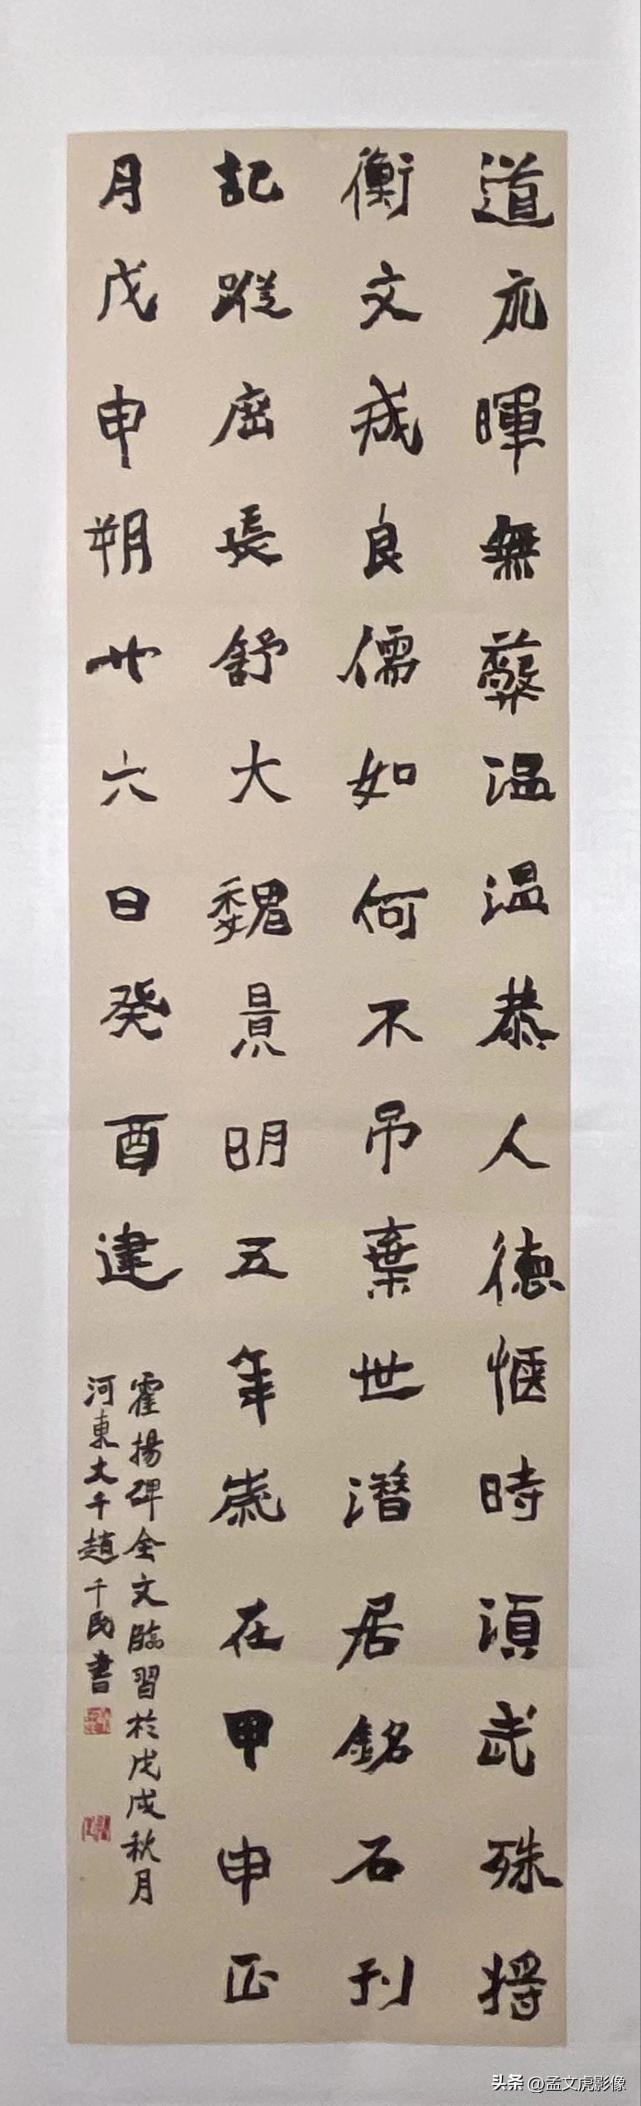 道充暉無蔑温温恭人德愜時須武殊將
衡文成良儒如何不吊棄世潛居銘石刊
記蹤窋長舒大魏景明五年歲在甲申正
月戊申朔廿六日癸酉建
霍揚碑全文臨習於戊戌秋月
河東大千趙千民書
头条 @孟文虎影像